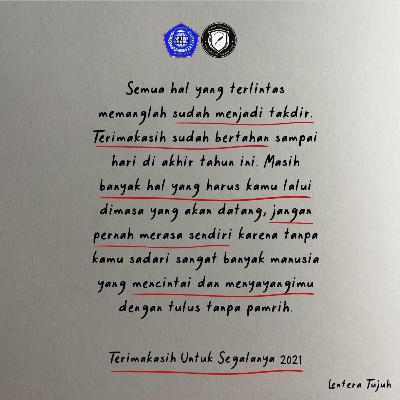 Semua hal yang terlintas
memanglah sudah menjadi takdir.
Terimakasih sudah bertahan sampai
hari di akhir tahun ini. Masih
banyak hal yang harus kamu lalui
dimasa yang akan datang, jangan
pernah merasa sendiri karena tanpa
kamu sadari sangat banyak manusia
yang mencintai dan menyayangimu
dengan tulus tanpa pamrih.
Terimakasih Untuk Segalanya 2021
Lentera Tujuh